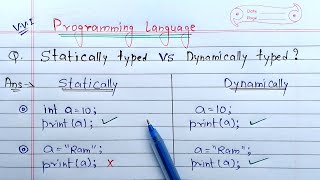 V.V.I Programming Language
Date
Page
Q. Statically typed Vs Dynamically typed?
Ans→ Statically Dynamically
int a=10; a=10;
print(a); ✓ print(a); ✓
a="Ram"; a="Ram";
print(a); x print(a); ✓